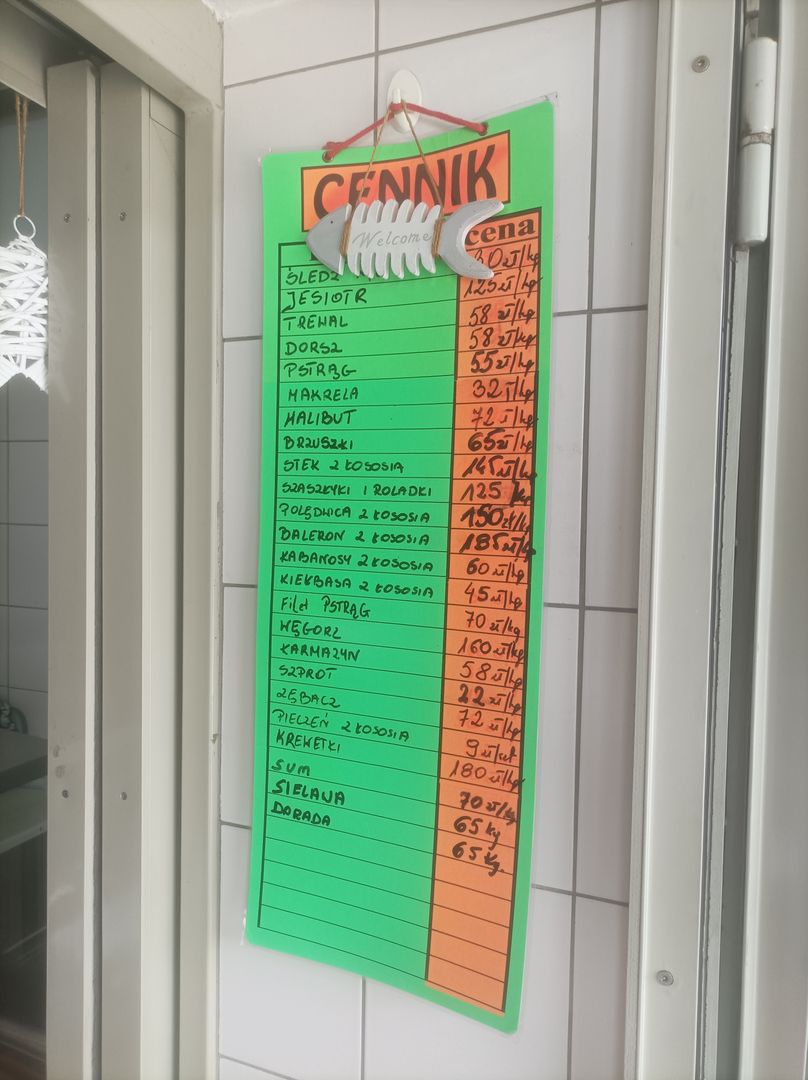 CENNIK
Welcome
cena
ŚLEDŹ
JESIOTR 125 zł/kg
TREWAL 58 zł/kg
DORSZ 58 zł/kg
PSTRĄG 55 zł/kg
MAKRELA 32 zł/kg
HALIBUT 72 zł/kg
BRZUSZKI 65 zł/kg
STEK Z ŁOSOSIA 145 zł/kg
SZASZŁYKI I ROLADKI 125 kg
POLĘDWICA Z ŁOSOSIA 150 zł/kg
BALERON Z ŁOSOSIA 185 zł/kg
KABANOSY Z ŁOSOSIA 60 zł/kg
KIEŁBASA Z ŁOSOSIA 45 zł/kg
Filet PSTRĄG 70 zł/kg
WĘGORZ 160 zł/kg
KARMAZYN 58 zł/kg
SZPROT 22 zł/kg
ZĘBACZ 72 zł/kg
PIECZEŃ Z ŁOSOSIA 9 zł/szt
KREWETKI 180 zł/kg
SUM 70 zł/kg
SIELAWA 65 kg
DORADA 65 kg